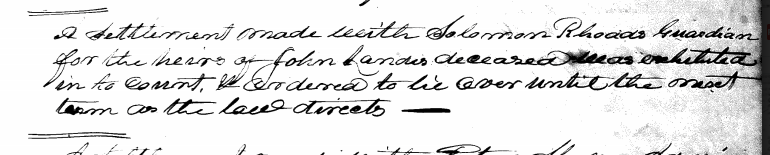 A Settlement made with Solomon Rhoads Guardian
for the heirs of John Landis deceased was exhibited
in to Court, & ordered to lie over until the next
term as the law directs —